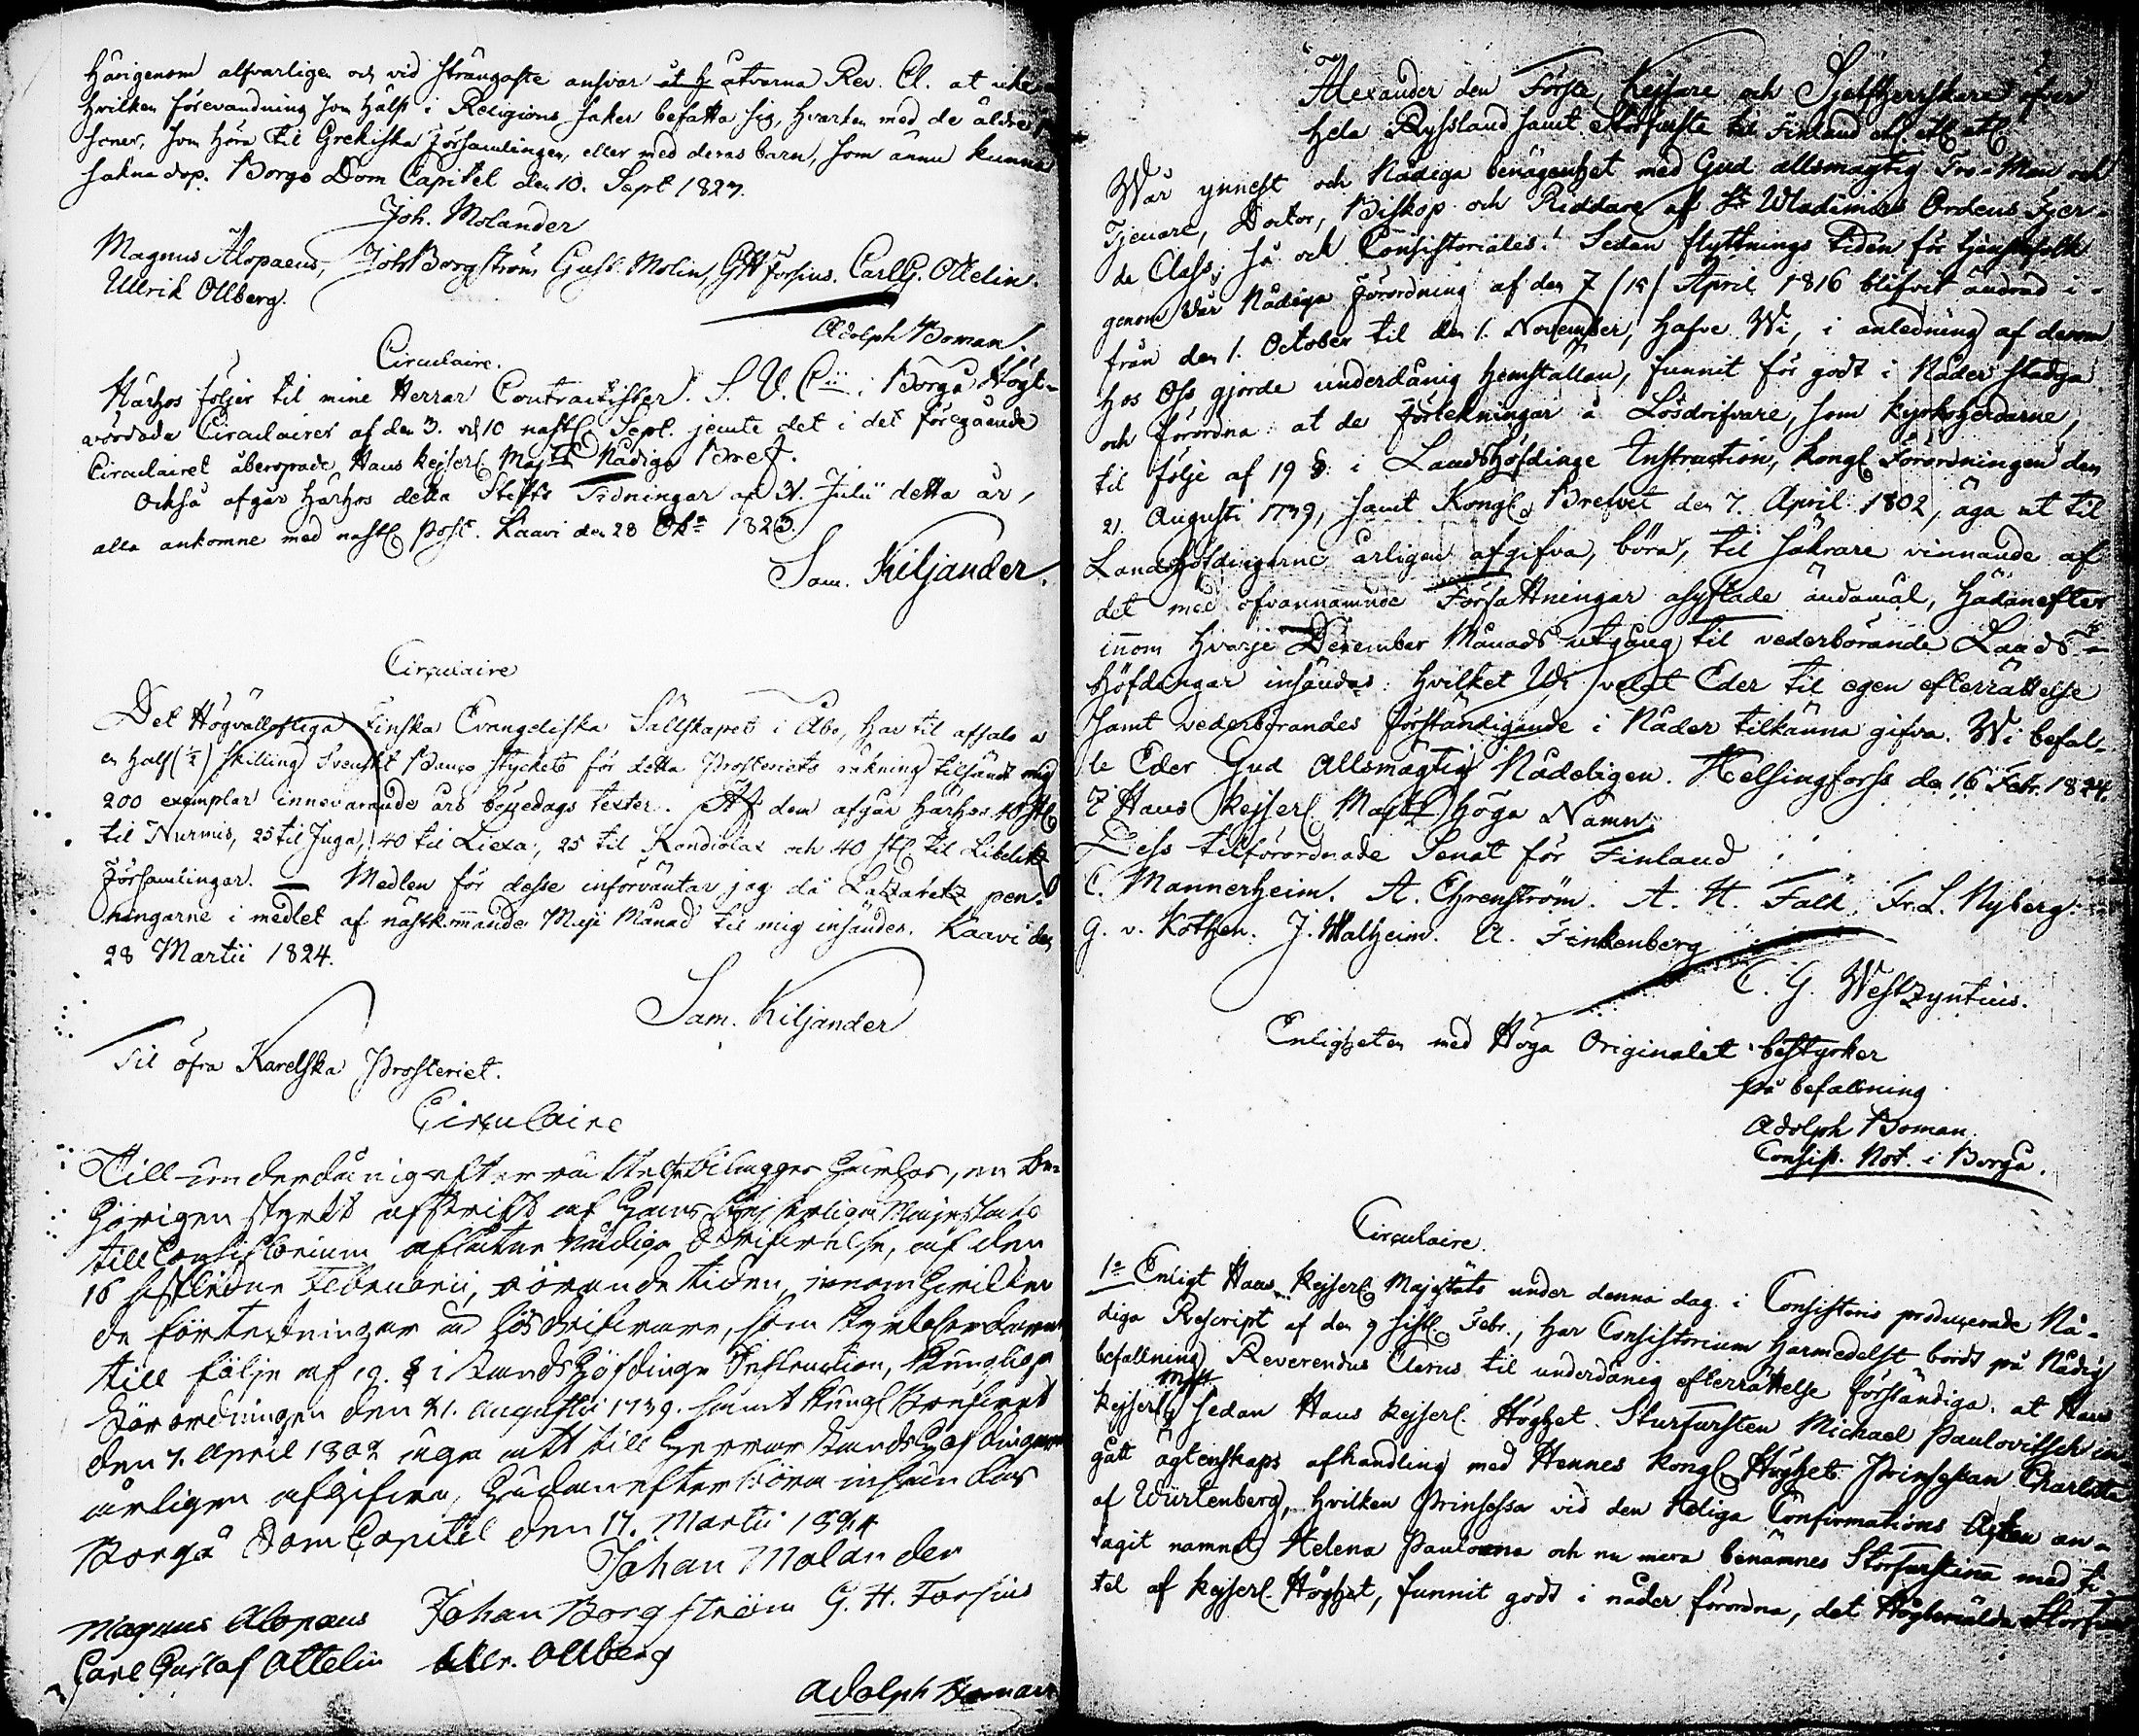 Härigenom alfvarligen och vid strängaste answar åt h åtvarna Rev. Cl. at icke
hvilken förevändning som hälst i Religions saker befatta sig, hvarken med de äldre
soner, som höra til Grekiska Församlingen, eller med deras barn, som ännu kunna
sakna dop. Borgo Dom Capitel den 10. Sept 1823.
Joh. Molander
Magnus Alopaeus, Joh Borgström Gust. Molin, G H Forsius. Carl G. Ottelin.
Ullrik Ollberg.
Adolph Boman.
Circulaire.
Härhos följer til mine Herrar Contractister. S. V. Cii i Borgå Högt-
vördade Circulairer af den 3. och 10 nästl. Sept. jemte det i det föregående
Circulairet åberopade Hans Kejserl. Maj:ts Nådiga Bref.
Också afgår härhos detta Stifts Tidningar af 31. Julii detta år,
alla ankomne med nästl. post. Kaavi den 28 Okt. 1823.
Sam. Kiljander.
Circulaire
Det Högvällofliga Finska Evangeliska Sällskapet i Åbo, har til afsalo a
en half (½) skilling Svenskt Banco stycket för detta Prosteriets räkning tilsändt mig
200 exemplar innevarande års bönedags texter. Af dem afgår härhos 40 st.
til Nurmis, 25 til Juga, 40 til Liexa, 25 til Kondiolax och 40 st. til Libelitz
Församlingar. — Medlen för desse inforväntar jag då Lazaretz pen-
ningarne i medlet af nästkommande Maji Månad til mig insändes. Kaavi den
28 Martii 1824.
Sam. Kiljander
Til öfra Karelska Prosteriet.
Circulaire
Till underdånig efterrättelse bilägges härhos, en be-
hörigen styrkt afskrift af Hans Kejserliga Majestäts
till Consistorium aflåtne Nådiga Skrifvelse, af den
16 sistledne Februarii, rörande tiden, innom hvilken
de förtekningar på Lösdrifvare, som Kyrkoherdarne
till följe af 19. § i Landshöfdinge Instruction, Kungliga
Förordningen den 21. Augustii 1739. samt Kungl Brefvet
den 7. April 1802 äga att till Herrar Landshöfdingarne
årligen afgifva, hädanefter böra insändas
Borgå Dom Capitel den 17. Martii 1824
Johan Molander
Magnus Alopaeus Johan Borgström G. H. Forsius
Carl Gustaf Ottelin Ullr. Ollberg
Adolph Boman
Alexander den Förste, Kejsare och Sjelfherrskare öfver
hela Ryssland samt Storfurste til Finland etc etc etc.
Wår ynnest och Nådiga benägenhet med Gud allsmägtig Tro-Man och
Tjenare, Doctor, Biskop och Riddare af St. Wladimirs Ordens Fjer-
de Class, så ock Consistoriales! Sedan flyttnings tiden för tjenstefolk
genom Vår Nådiga Förordning af den 7 (19) April 1816 blifvit ändrad i-
från den 1. October til den 1. November, hafve Wi, i anledning af derom
hos Oss gjorde underdånig hemställan, funnit för godt i Nåder stadga
och förordna: at de Förtekningar å Lösdrifvare, som Kyrkoherdarne,
til följe af 19 §. i Landshöfdinge Instruction, Kongl. Förordningen den
21. Augusti 1739, samt Kongl. Brefvet den 7. April 1802, äga at til
Landshöfdingarne årligen afgifva, böra, til säkrare vinnande af
det med ofvannämnde Författningar åsyftade ändamål, hädanefter
innom hvarje December Månads utgång til vederbörande Lands-
höfdingar insändas: hvilket Wi velat Eder til egen efterrättelse
samt vederbörandes förständigande i Nåder tilkänna gifva. Wi befal-
le Eder Gud Allsmägtig Nådeligen. Helsingforss den 16 Febr. 1824.
I Hans Kejserl. Maj:ts Höga Namn:
Dess tilförordnade Senat för Finland
C. Mannerheim. A. Ehrenström. A. H. Falck. Fr. L. Nyberg.
G. v. Kothen. J. Walheim. A. Finkenberg
C. G. Westzyntius.
Enligheten med Höga Originalet bestyrker
på befallning
Adolph Boman
Consist. Not. i Borgå.
Circulaire.
1o Enligt Hans Kejserl. Majestäts under denna dag i Consistorio producerade Nå-
diga Rescript af den 9 sistl. Febr., har Consistorium härmedelst bordt på Nådig
befallning Reverendus Clerus til underdånig efterrättelse förständiga: at Hans
Kejserl. Mjt sedan Hans Kejserl. Höghet Storfursten Michael Paulovitsch in
gått ägtenskaps afhandling med Hennes Kongl. Höghet Prinsessan Charlotta
af Würtenberg, hvilken Prinsessa vid den Heliga Confirmations Acten an-
tagit namnet Helena Paulovna och nu mera benämnes Storfurstinna med ti-
tel af Kejserl. Höghet, funnit godt i nåder förordna, det Högbemälde Storfur